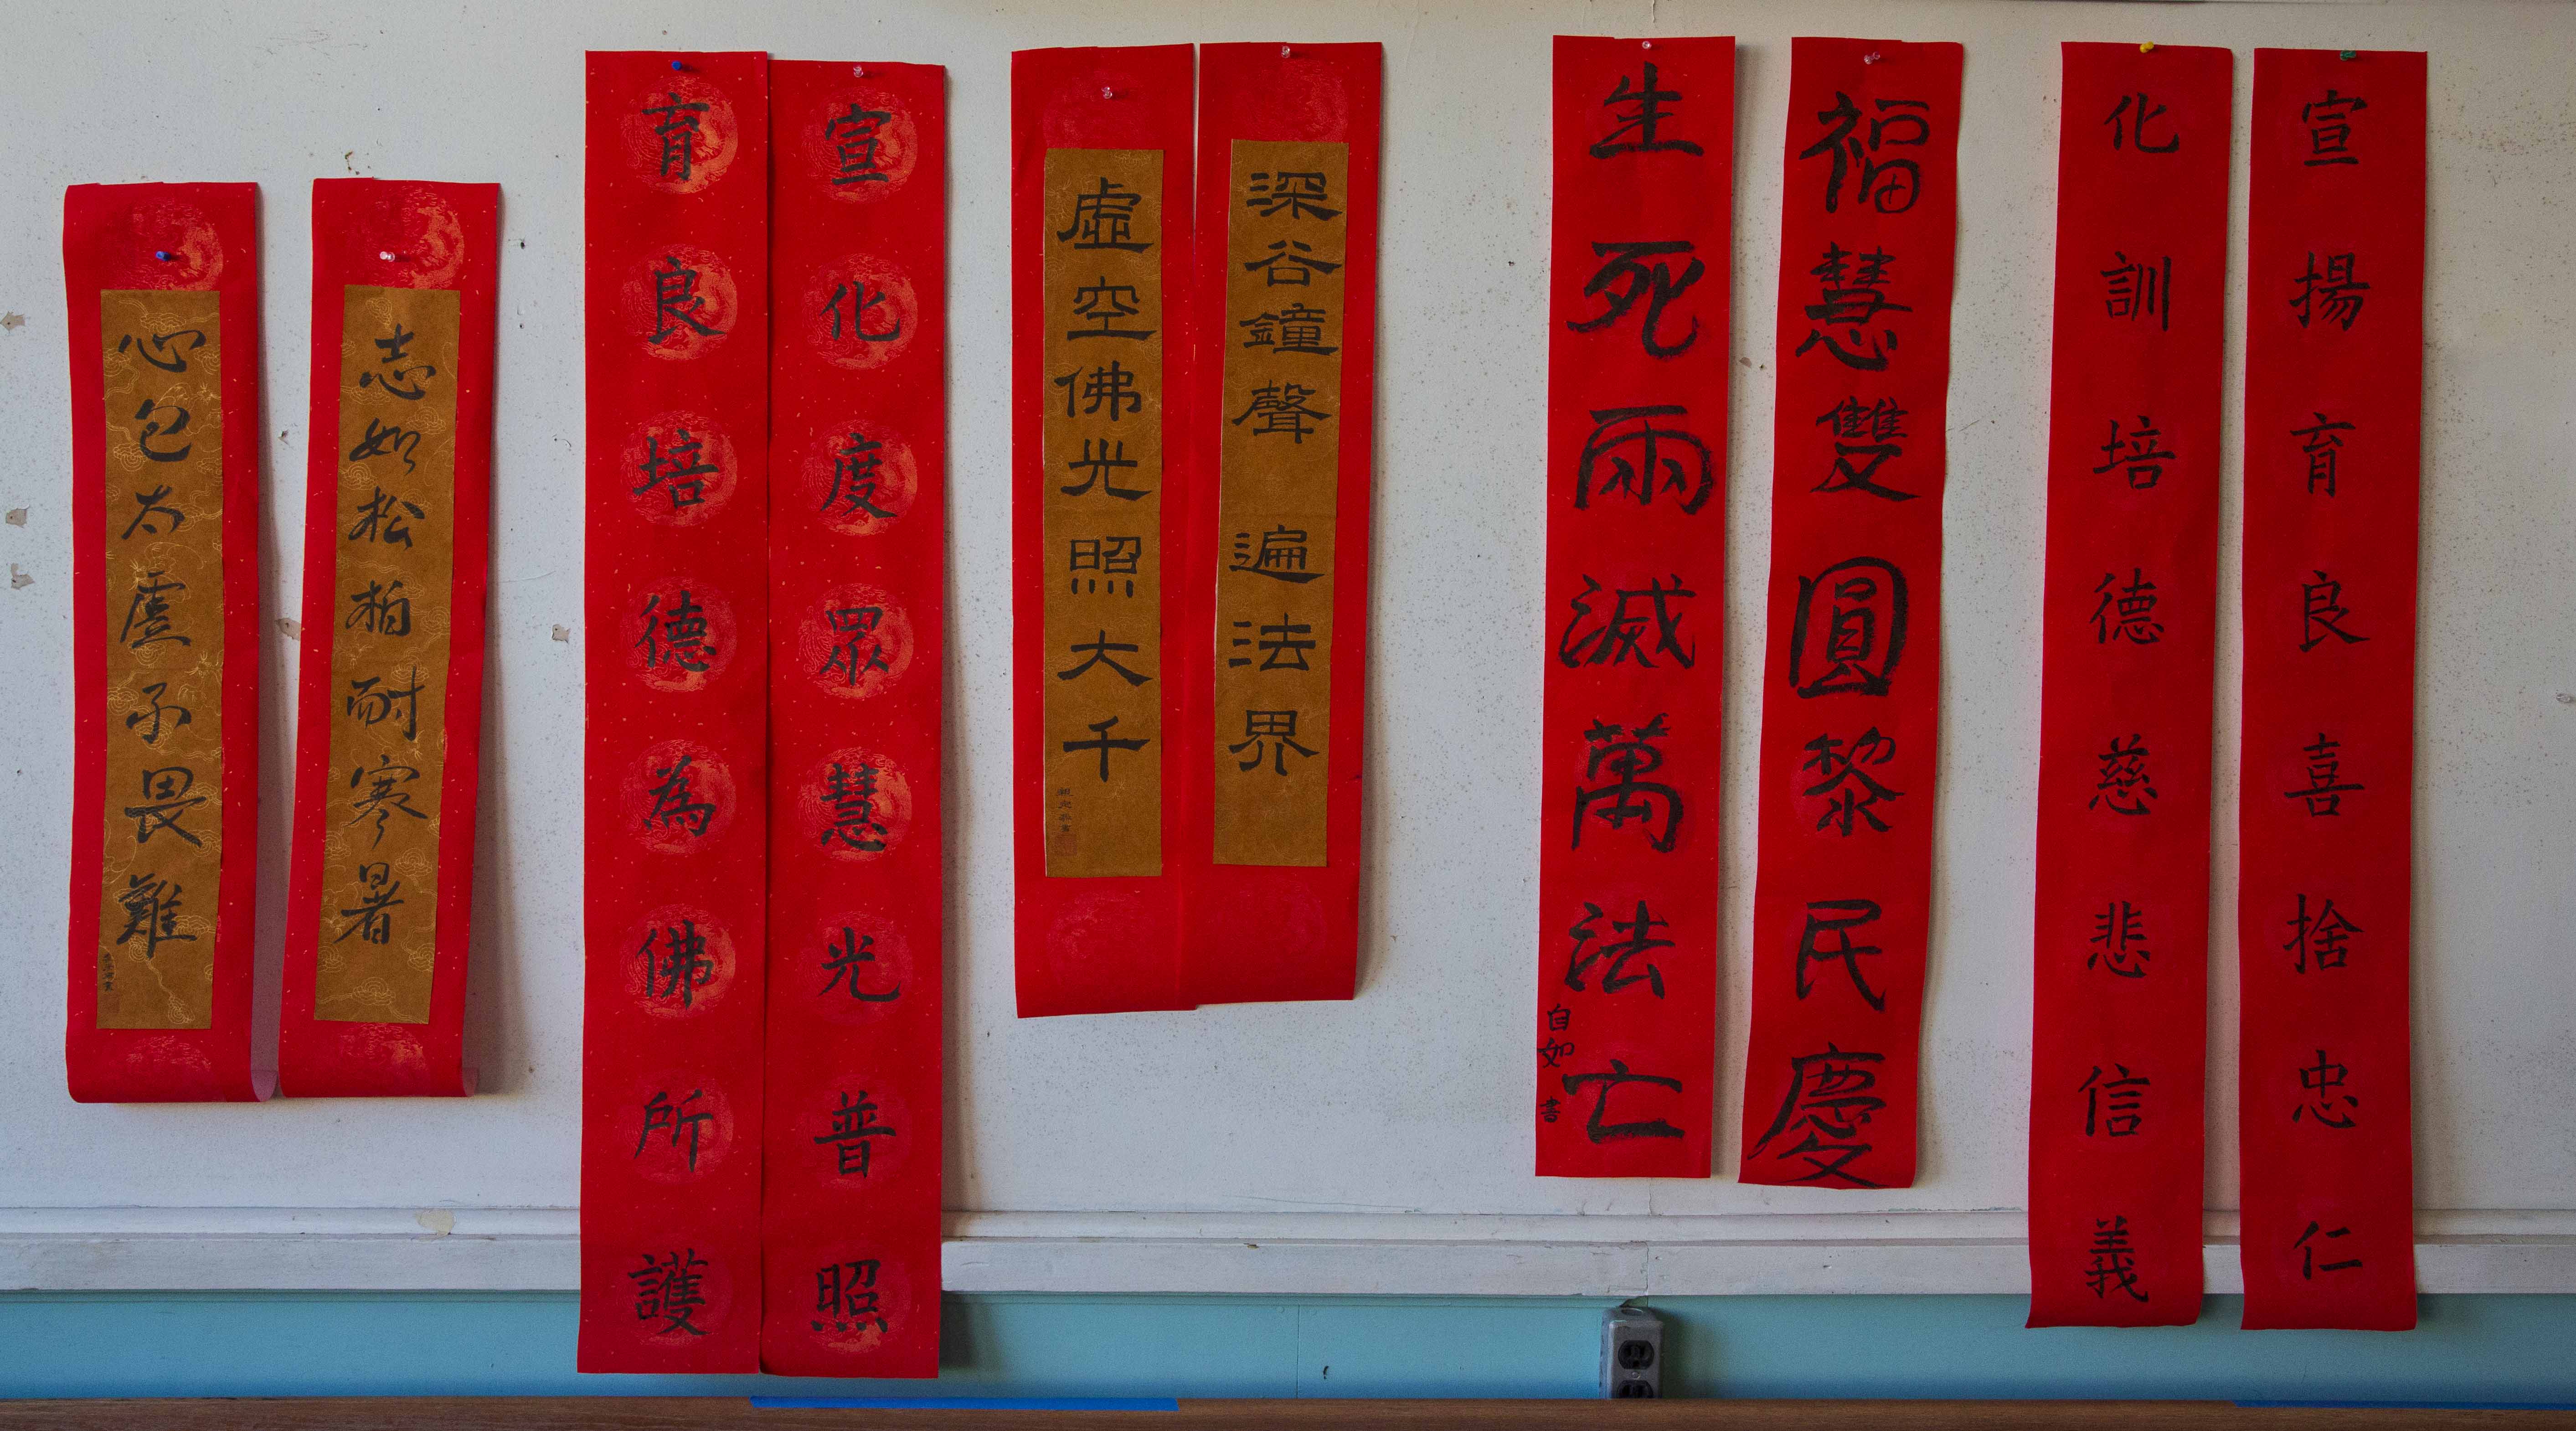 宣揚育良喜捨忠仁
化訓培德慈悲信義
福慧雙圓黎民慶
生死兩滅萬法亡
自如書
深谷鐘聲遍法界
虛空佛光照大千
宣化度眾慧光普照
育良培德為佛所護
志如松柏耐寒暑
心包太虛不畏難